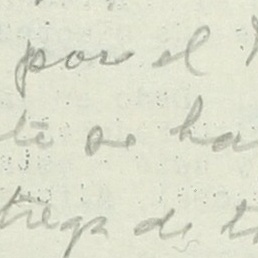 por el
te se ha
trega de t